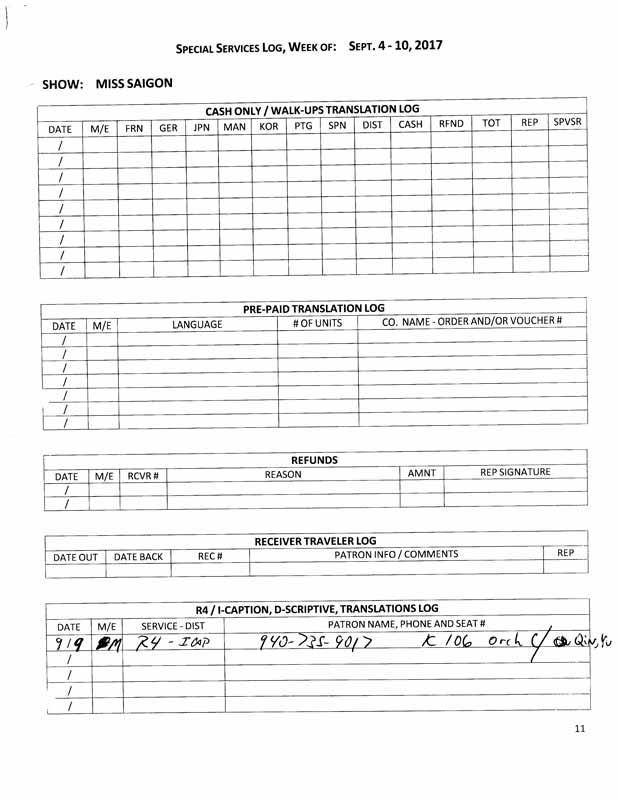 SPECIAL SERVICES LOG, WEEK OF: SEPT. 4 - 10, 2017
SHOW: MISS SAIGON
CASH ONLY / WALK-UPS TRANSLATION LOG
DATE M/E FRN GER JPN MAN KOR PTG SPN DIST CASH RFND TOT REP SPVSR
/
/
/
/
/
/
/
/
/
PRE-PAID TRANSLATION LOG
DATE M/E LANGUAGE # OF UNITS CO. NAME - ORDER AND/OR VOUCHER #
/
/
/
/
/
/
/
REFUNDS
DATE M/E RCVR # REASON AMNT REP SIGNATURE
/
/
RECEIVER TRAVELER LOG
DATE OUT DATE BACK REC # PATRON INFO / COMMENTS REP
R4 / I-CAPTION, D-SCRIPTIVE, TRANSLATIONS LOG
DATE M/E SERVICE - DIST PATRON NAME, PHONE AND SEAT #
9/9 M R4 - ICAP 940-735-9017 K 106 Orch C/ Qin, Yu
/
/
/
/
11